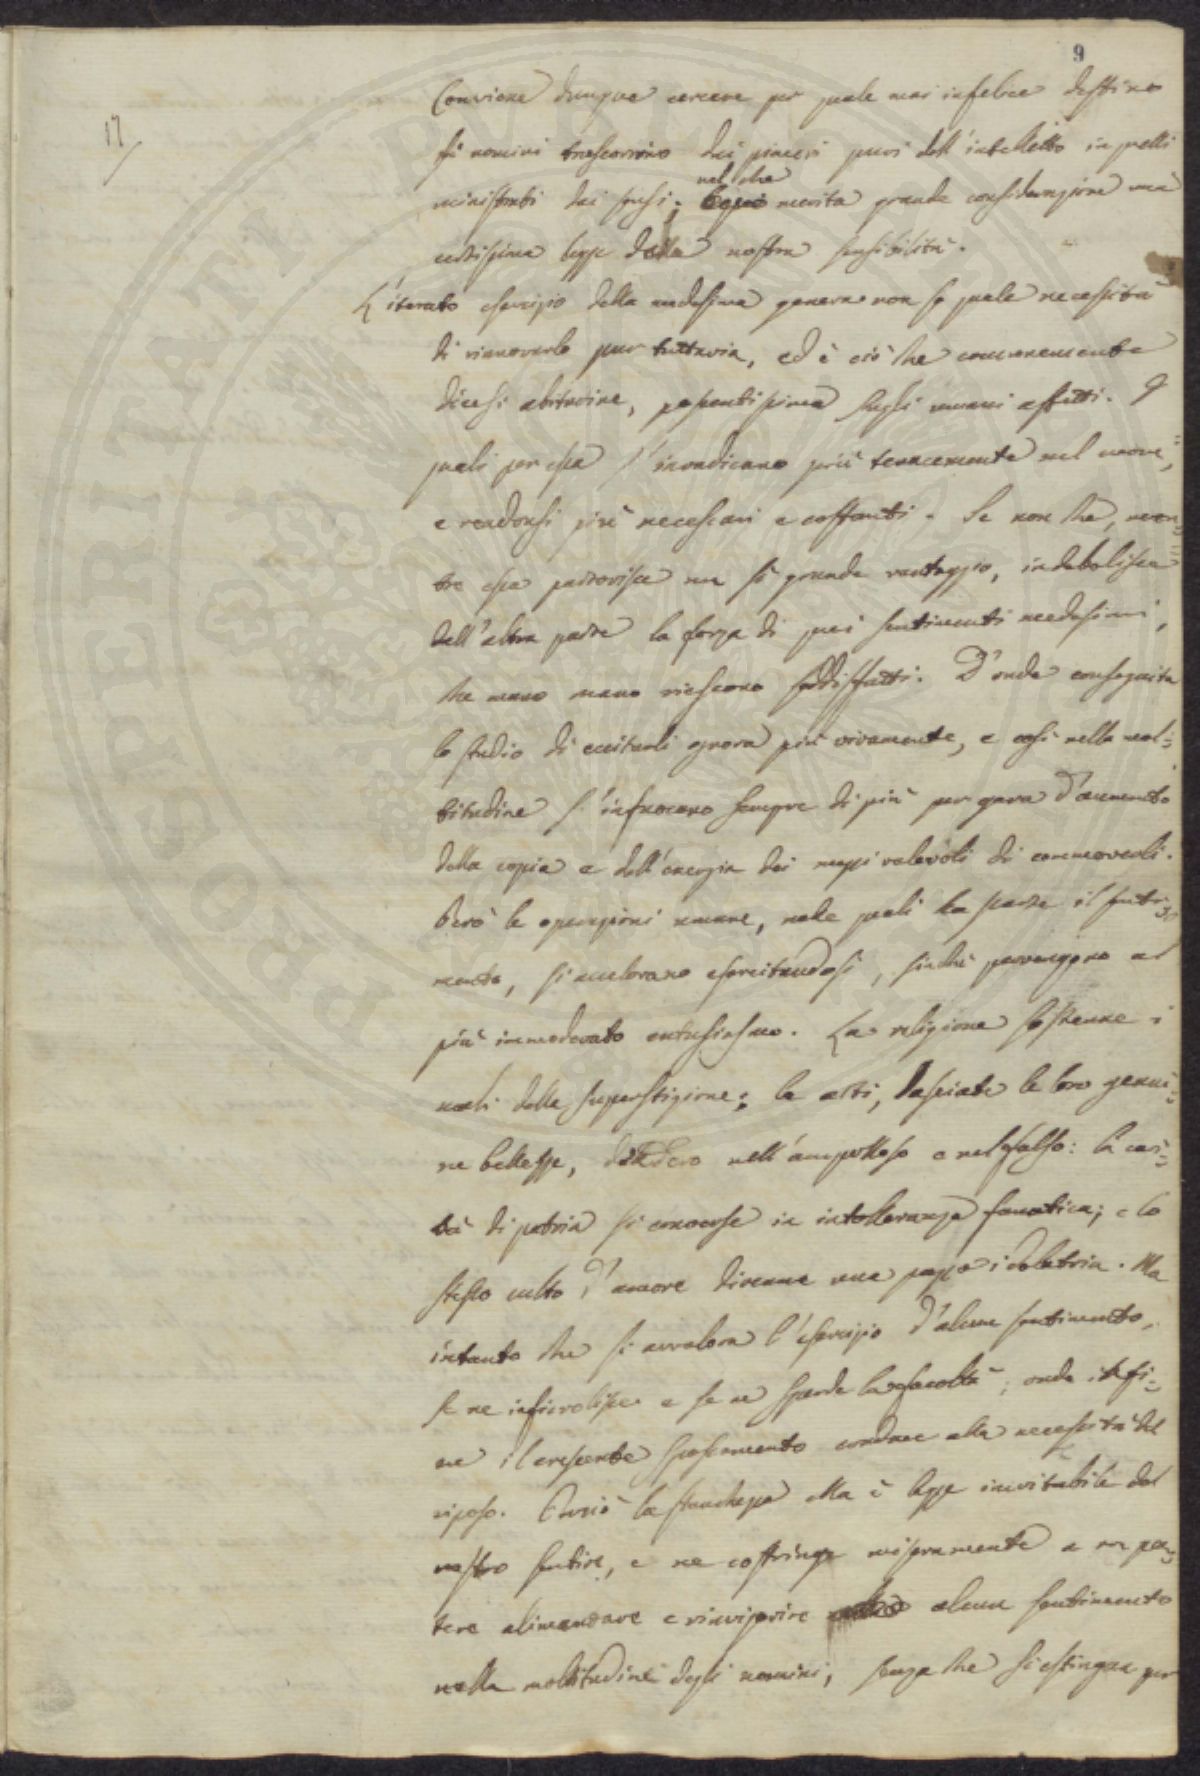 9
17
Conviene dunque cercare per quale mai infelice destino
gli uomini trascorrino dai piaceri puri dell'intelletto in quelli
nel che
ministrati dai sensi; merita grande considerazione una
certissima legge della nostra sensibilità.
L'iterato esercizio della medesima genera non so quale necessità
di rinnovarlo pur tuttavia, ed è ciò che comunemente
dicesi abitudine, possentissima sugli umani affetti. I
quali per essa s'inradicano più tenacemente nel cuore,
e rendonsi più necessari e costanti. Se non che, men=
tre essa partorisce un sì grande vantaggio, indebolisce
dall'altra parte la forza di quei sentimenti medesimi,
che mano mano riescono soddisfatti. D'onde conseguita
lo studio di eccitarli ognora più vivamente, e così nella mol=
titudine s'infuocano sempre di più per gara d'aumento
della copia e dell'energia dei mezzi valevoli di commoverli.
Però le operazioni umane, nelle quali ha parte il senti=
mento, si accelerano esercitandosi, sinchè pervengono al
più immoderato entusiasmo. La religione sostenne i
mali della superstizione; le arti, lasciate le loro genui=
ne bellezze, diedero nell'ampolloso e nel falso: la cari=
tà di patria si converse in intolleranza fanatica; e lo
stesso culto d'amore divenne una pazza idolatria. Ma
intanto che si avvalora l'esercizio d'alcun sentimento,
se ne infievolisce e se ne sperde la facoltà; onde infi=
ne il crescente spossamento conduce alla necessità del
riposo. Perciò la stanchezza ella è legge inevitabile del
nostro sentire, e ne costringe miseramente a non po=
tere alimentare e rinvigorire alcun sentimento
nella moltitudine degli uomini, senza che si estingua per
PROSPERITATI PVBLICAE